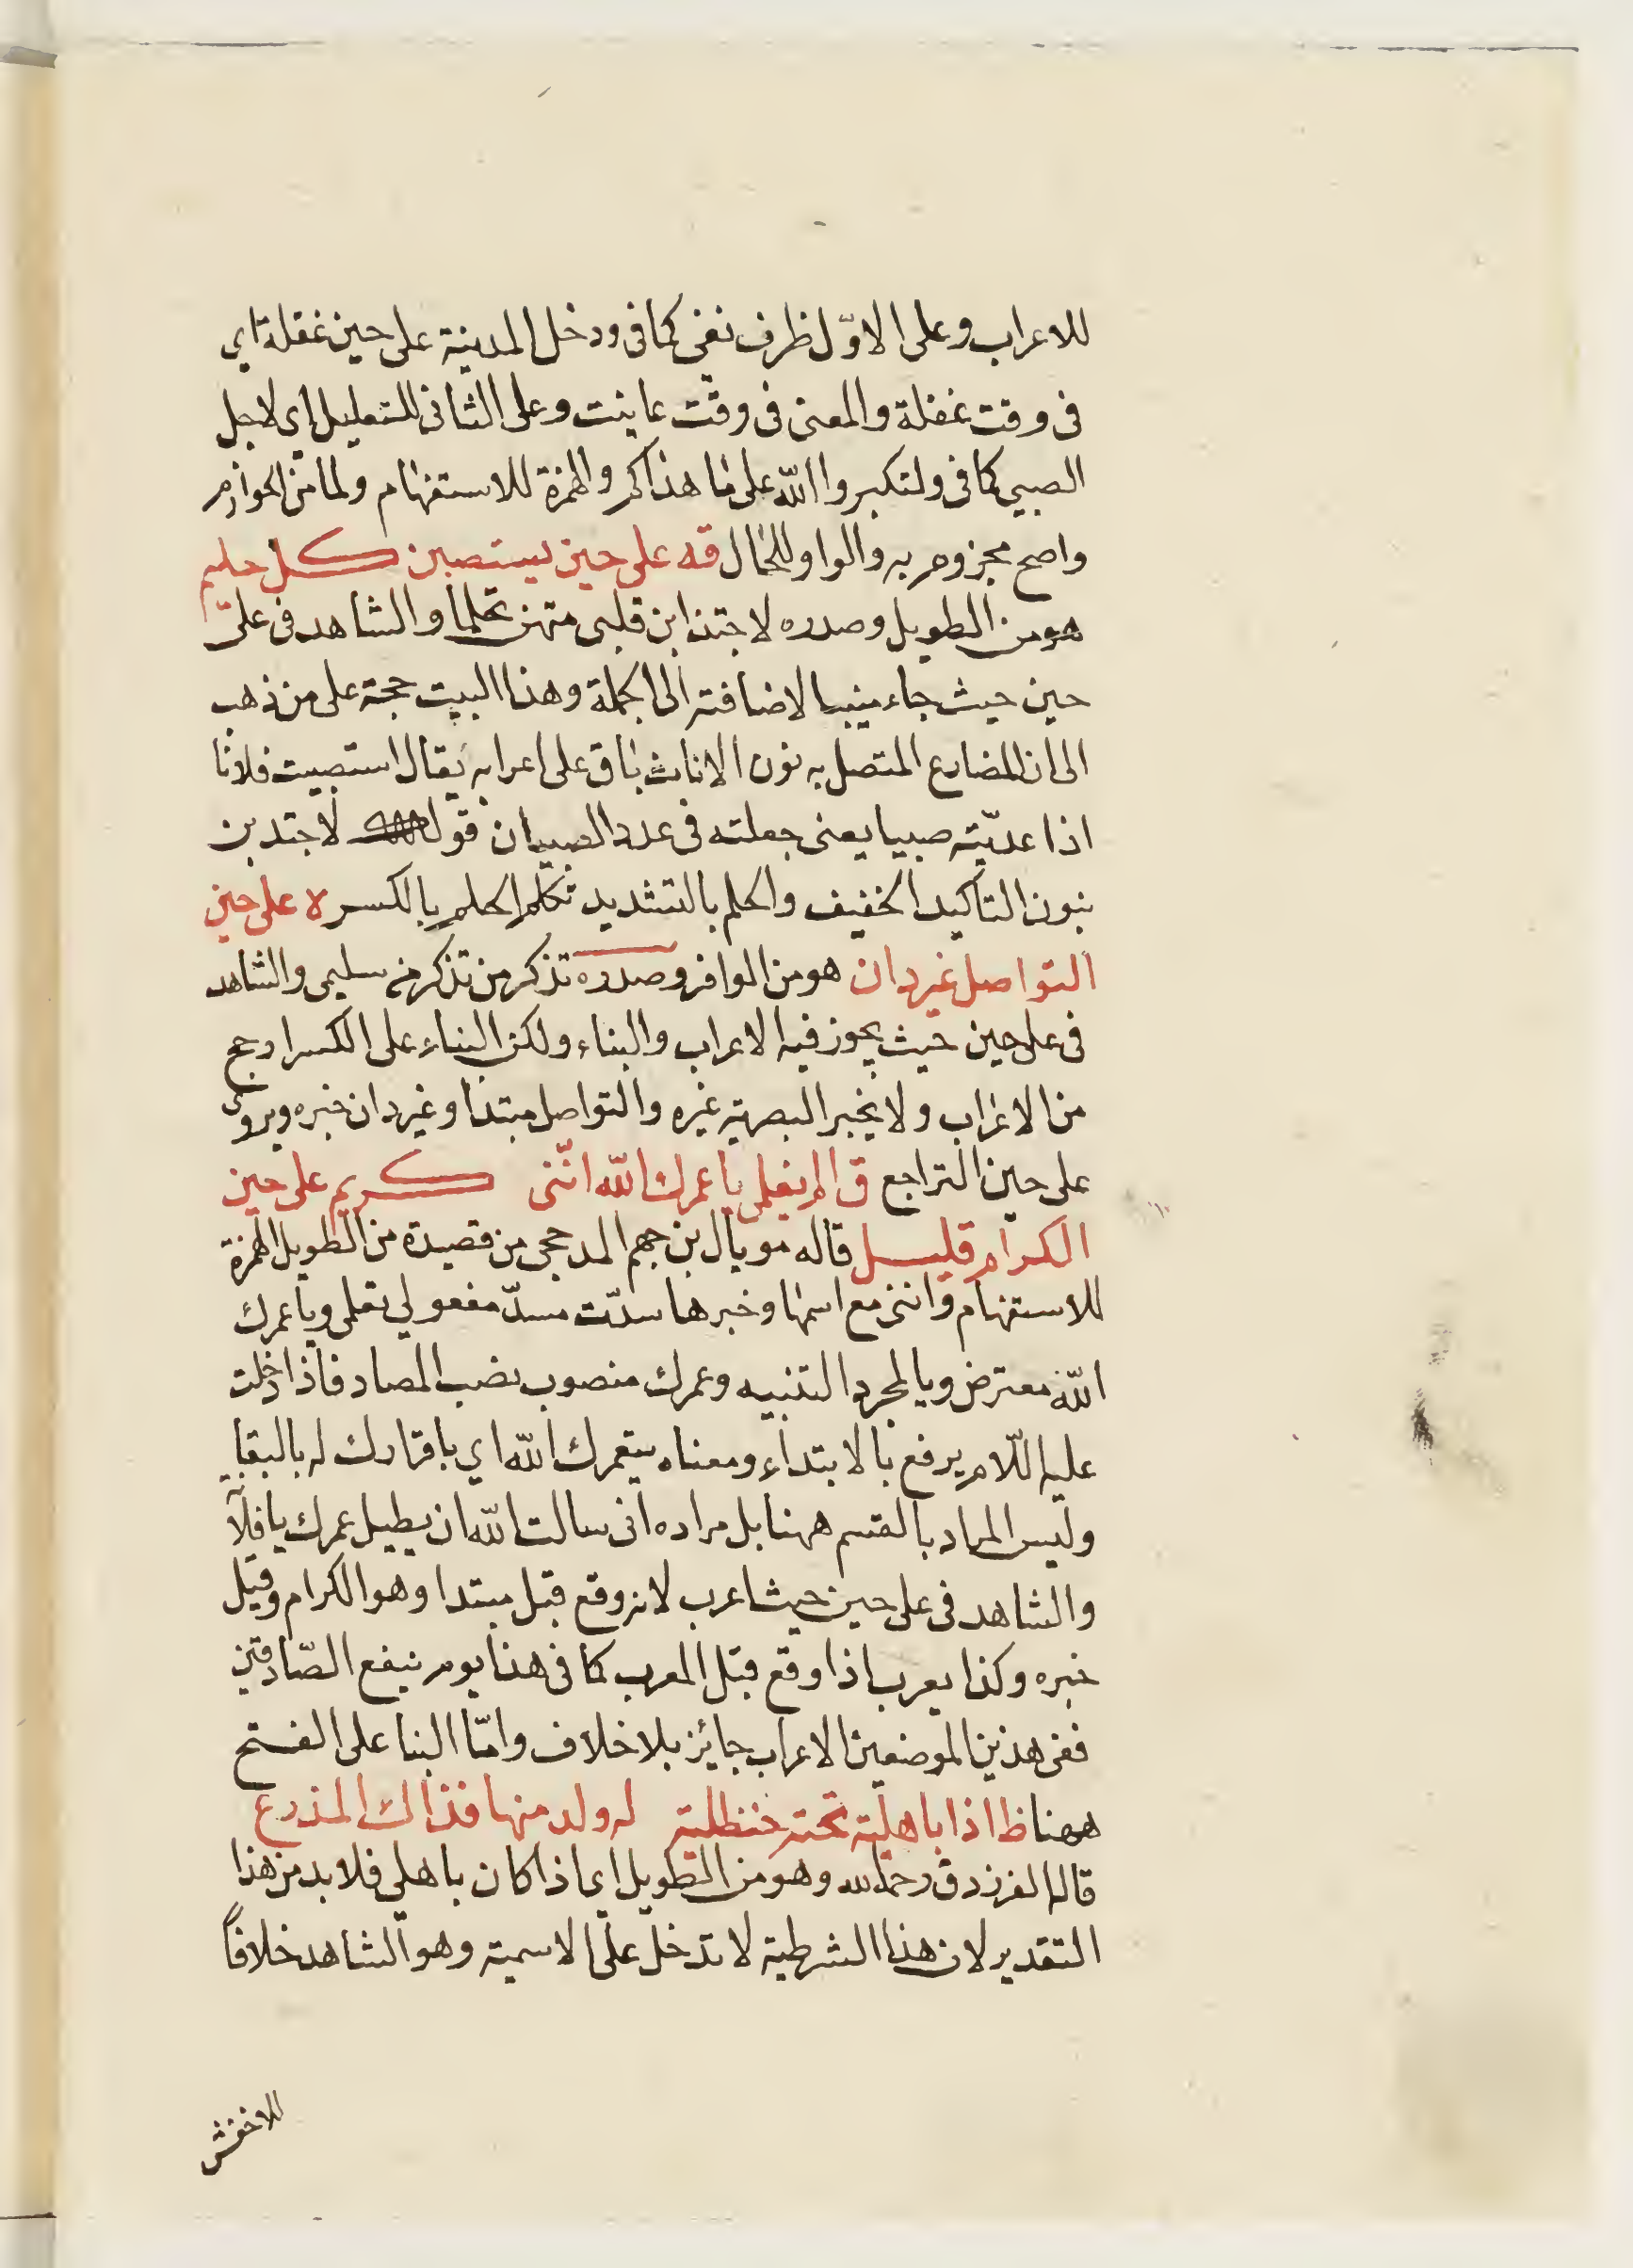 للاعراب وعلى الاوّل ظرف نفى كما فى ودخل المدينة على حين غفلة اي
فى وقت غفلة والمعنى فى وقت عاينت وعلى الثانى للتعليل اي لاجل
الصبي كما فى ولتكبروا الله على ما هذاكم والهمزة للاستفهام ولما من الجوازم
واصح مجزوم به والواو للحال قه على حين يستصبين كل حليم
هو من الطويل وصدره لاجتذابن قلبى منهن تحلما والشاهد فى على
حين حيث جاء مبنيا لاضافته الى الجملة وهذا البيت حجة على من ذهب
الى ان المضارع المتصل به نون الاناث باق على اعرابه يقال استصبيت فلانا
اذا عديّته صبيا يعنى جعلته فى عدد الصبيان قوله لاجتدبن
بنون التأكيد الخفيف والحلم بالتشديد تكلم الحلم بالكسر لا على حين
التواصل غير دان هو من الوافر وصدره تذكر من تذكر من سليمى والشاهد
فى على حين حيث يجوز فيه الاعراب والبناء ولكن البناء على الكسر ارجح
من الاعراب ولا يخبر البصرية غيره والتواصل مبتدا وغير دان خبره ويروى
على حين التراجع ق الم يعلمى يا عمرك الله انّنى كريم على حين
الكرام قليل قاله موبال بن جهم المدحجى من قصيدة من الطويل الهمزة
للاستفهام واننى مع اسمها وخبرها سدّت مسدّ مفعولي تعلمى ويا عمرك
الله معترض ويا لمجرد التنبيه وعمرك منصوب نصب المصادر فاذا دخلت
عليه اللّام يرفع بالابتداء ومعناه بتعمرك الله اي باقرارك له بالبقاء
وليس المراد بالقسم ههنا بل مراده انى سالت الله ان يطيل عمرك يا فلان
والشاهد فى على حين حيث اعرب لانه وقع قبل مبتدا وهو الكرام وقيل
خبره وكذا يعرب اذا وقع قبل المعرب كما فى هذا يوم ينفع الصّادقين
ففى هذين الموضعين الاعراب جايز بلا خلاف وامّا البنا على الفتح
ههنا ظ اذا باهلية تحته خنظلية له ولد منها فذاك المذرع
قاله الفرزدق رحمه الله وهو من الطويل اي اذا كان باهلي فلا بد من هذا
التقدير لان هذا الشرطية لا تدخل على الاسمية وهو الشاهد خلافاً
للاخفش